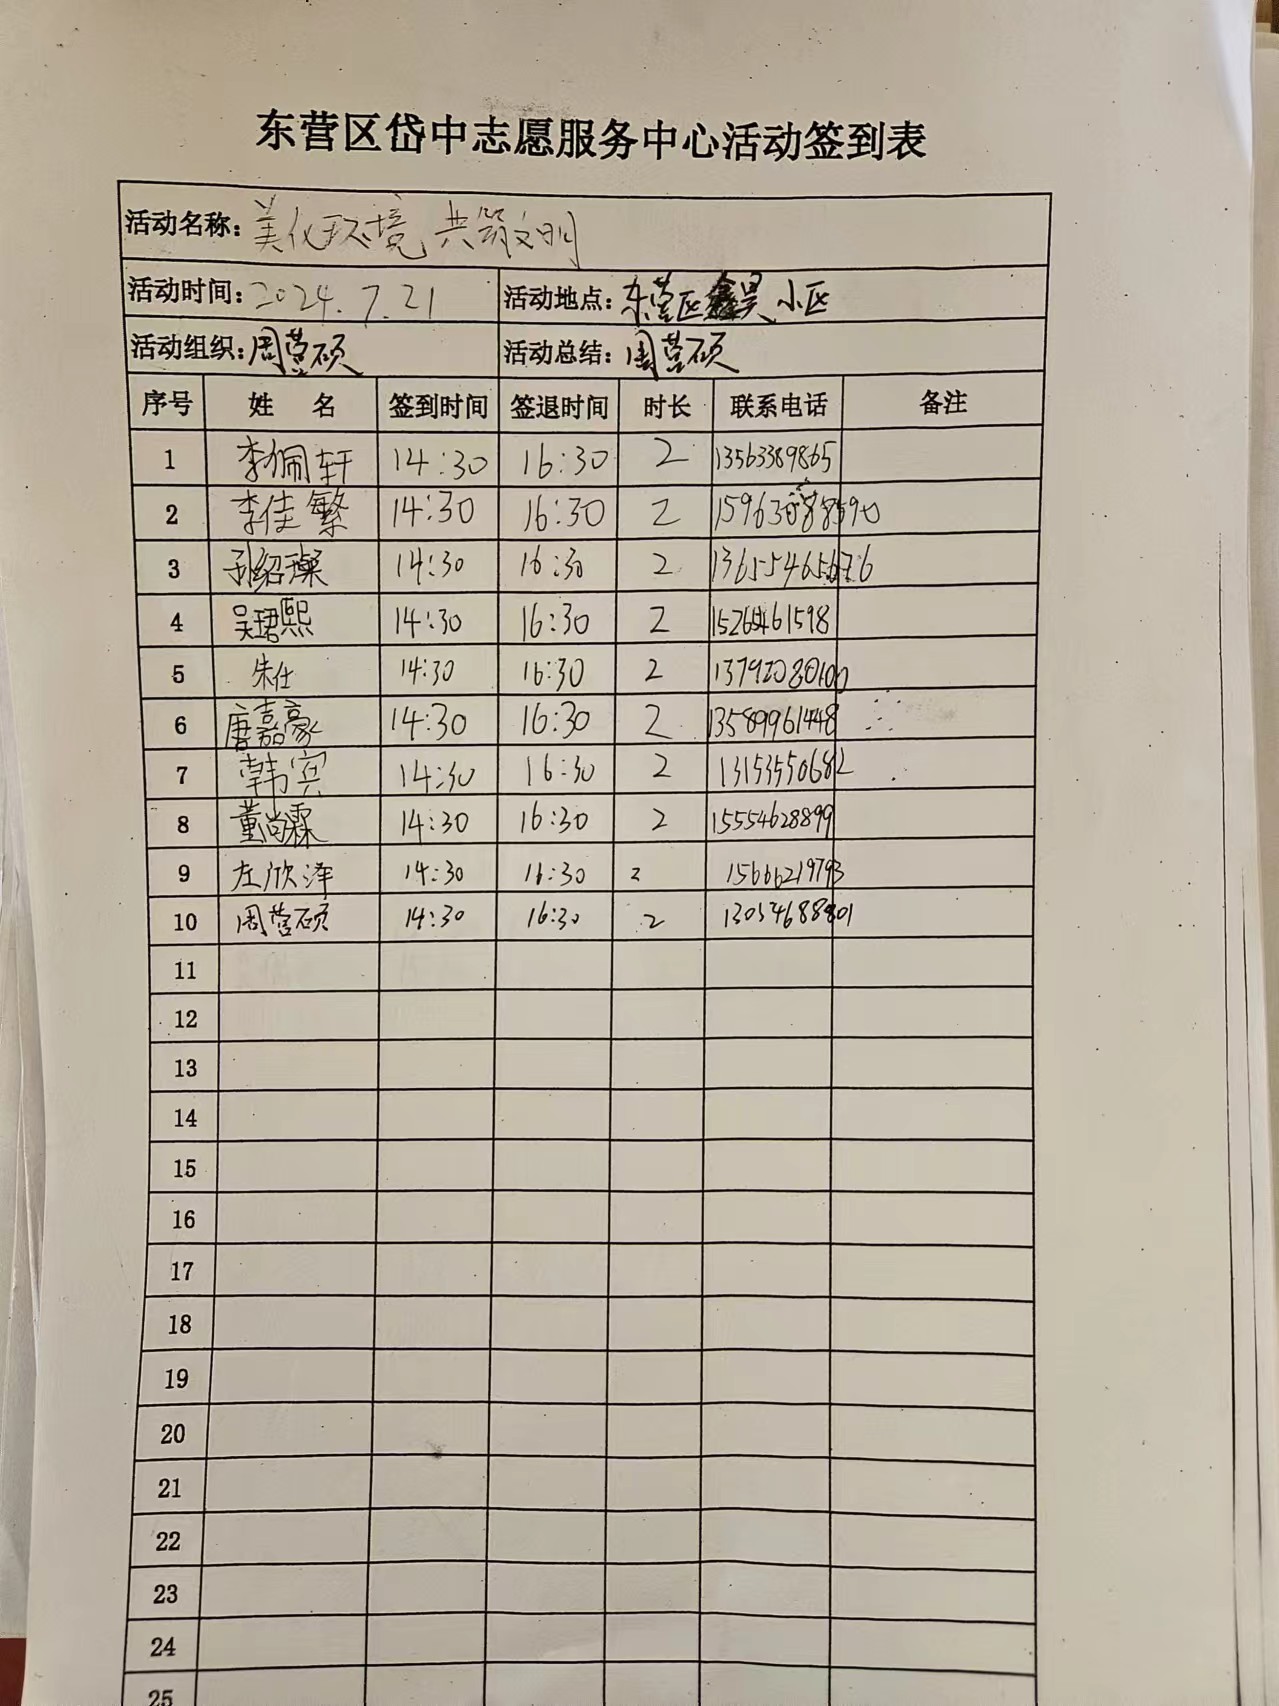 东营区岱中志愿服务中心活动签到表
活动名称：美化环境 共筑文明
活动时间：2024.7.21 活动地点：东营区鑫昊小区
活动组织：周营硕 活动总结：周营硕
序号 姓 名 签到时间 签退时间 时长 联系电话 备注
1 李佩轩 14:30 16:30 2 13563389865
2 李佳繁 14:30 16:30 2
3 孙绍璨 14:30 16:30 2
4 吴珺熙 14:30 16:30 2
5 朱仕 14:30 16:30 2 13792080100
6 唐嘉豪 14:30 16:30 2 13589961448
7 韩宾 14:30 16:30 2 13153550682
8 董尚霖 14:30 16:30 2 15554628899
9 左欣泽 14:30 16:30 2 15666219793
10 周营硕 14:30 16:30 2 13054688801
11
12
13
14
15
16
17
18
19
20
21
22
23
24
25